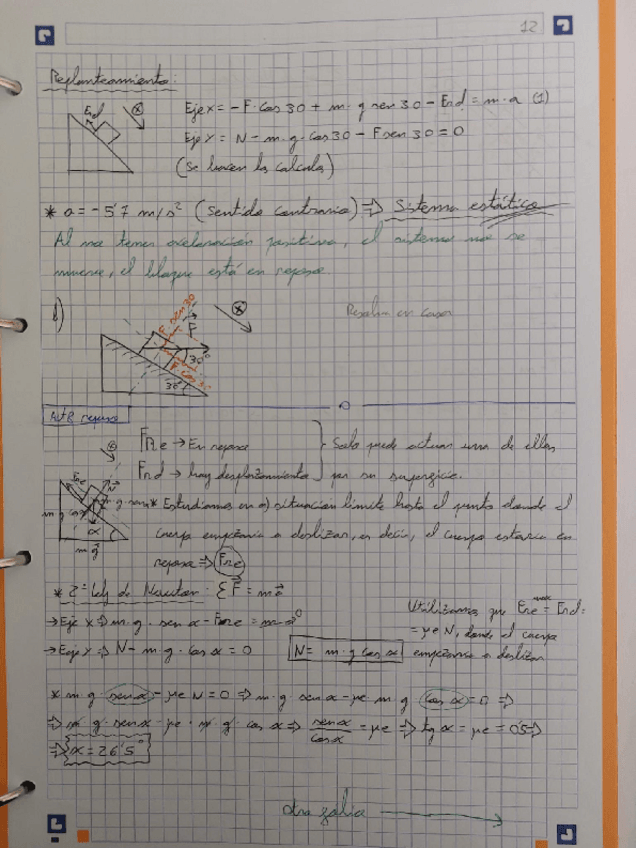 12
Replanteamiento:
Frd
x
Eje x = -F·Cos 30 + m·g sen 30 - Frd = m·a (1)
Eje Y = N - m·g·Cos 30 - F sen 30 = 0
(Se hacen los calculos)
* a = -5'7 m/s² (Sentido contrario) ⇒ Sistema estático
Al no tener aceleración positiva, el sistema no se
mueve, el bloque está en reposo.
b)
F sen 30
F
30°
F Cos 30
30°
x
Resolver en casa
Act 8 repaso
Fre → En reposo
Frd → hay desplazamiento
Solo puede actuar una de ellas
por su superficie.
x
Fre
N
α
m g
* Estudiamos en a) situación límite hasta el punto donde el
cuerpo empezaría a deslizar, es decir, el cuerpo estaría en
reposo ⇒ Fre
* 2ª Ley de Newton: Σ F = m a
→ Eje X ⇒ m·g·sen α - Fre = m·a 0
→ Eje Y ⇒ N - m·g·cos α = 0
N = m·g cos α
Utilizamos que Fre max = Frd =
= μe N, donde el cuerpo
empezaría a deslizar
* m·g·sen α - μe N = 0 ⇒ m·g·sen α - μe m g cos α = 0 ⇒
⇒ m·g·sen α = μe·m·g·cos α ⇒ sen α / cos α = μe ⇒ tg α = μe = 0'5 ⇒
⇒ α = 26'5°
otra folio →